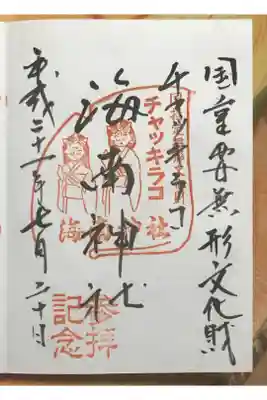 国重要無形文化財
チャッキラコ
海南神社
平成二十一年七月二十日
チャッキラコ
海南神社
参拝
記念